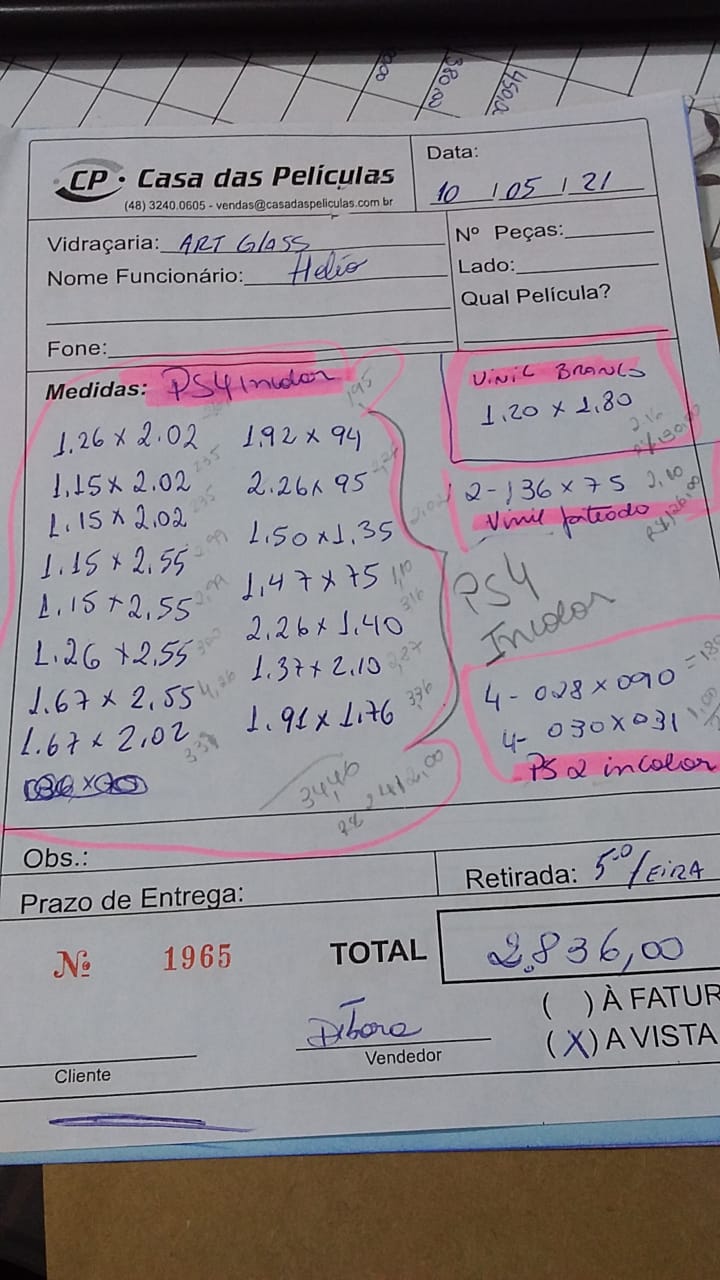 380,00
450,00
CP • Casa das Películas
(48) 3240.0605 - vendas@casadaspeliculas.com.br
Data:
10 / 05 / 21
Vidraçaria: ART Glass
Nome Funcionário: Helio
Fone:
Nº Peças:
Lado:
Qual Película?
Medidas: PS4 Incolor
195
1.26 x 2.02
1.15 x 2.02 235
1.15 x 2.02 235
1.15 x 2.55 2,99
1.15 x 2.55 2,99
1.26 x 2.55
1.67 x 2.55 4,26
1.67 x 2.02
1.92 x 94
2.26 x 95
1.50 x 1.35 2,02
1.47 x 75 1,10
2.26 x 1.40 316
1.37 x 2.10 2,87
1.91 x 1.76 336
34,46
R$ 2.412,00
Vinil Branco
1.20 x 1.80
2.16
2 - 1,36 x 75
Vinil Jateado
R$ 126,00
PS4
Incolor
4 - 028 x 090
4 - 030 x 031
PS 2 incolor
Obs.:
Prazo de Entrega:
Retirada: 5º/FEIRA
Nº 1965
TOTAL 2.836,00
( ) À FATUR
(X) A VISTA
Débora
Vendedor
Cliente